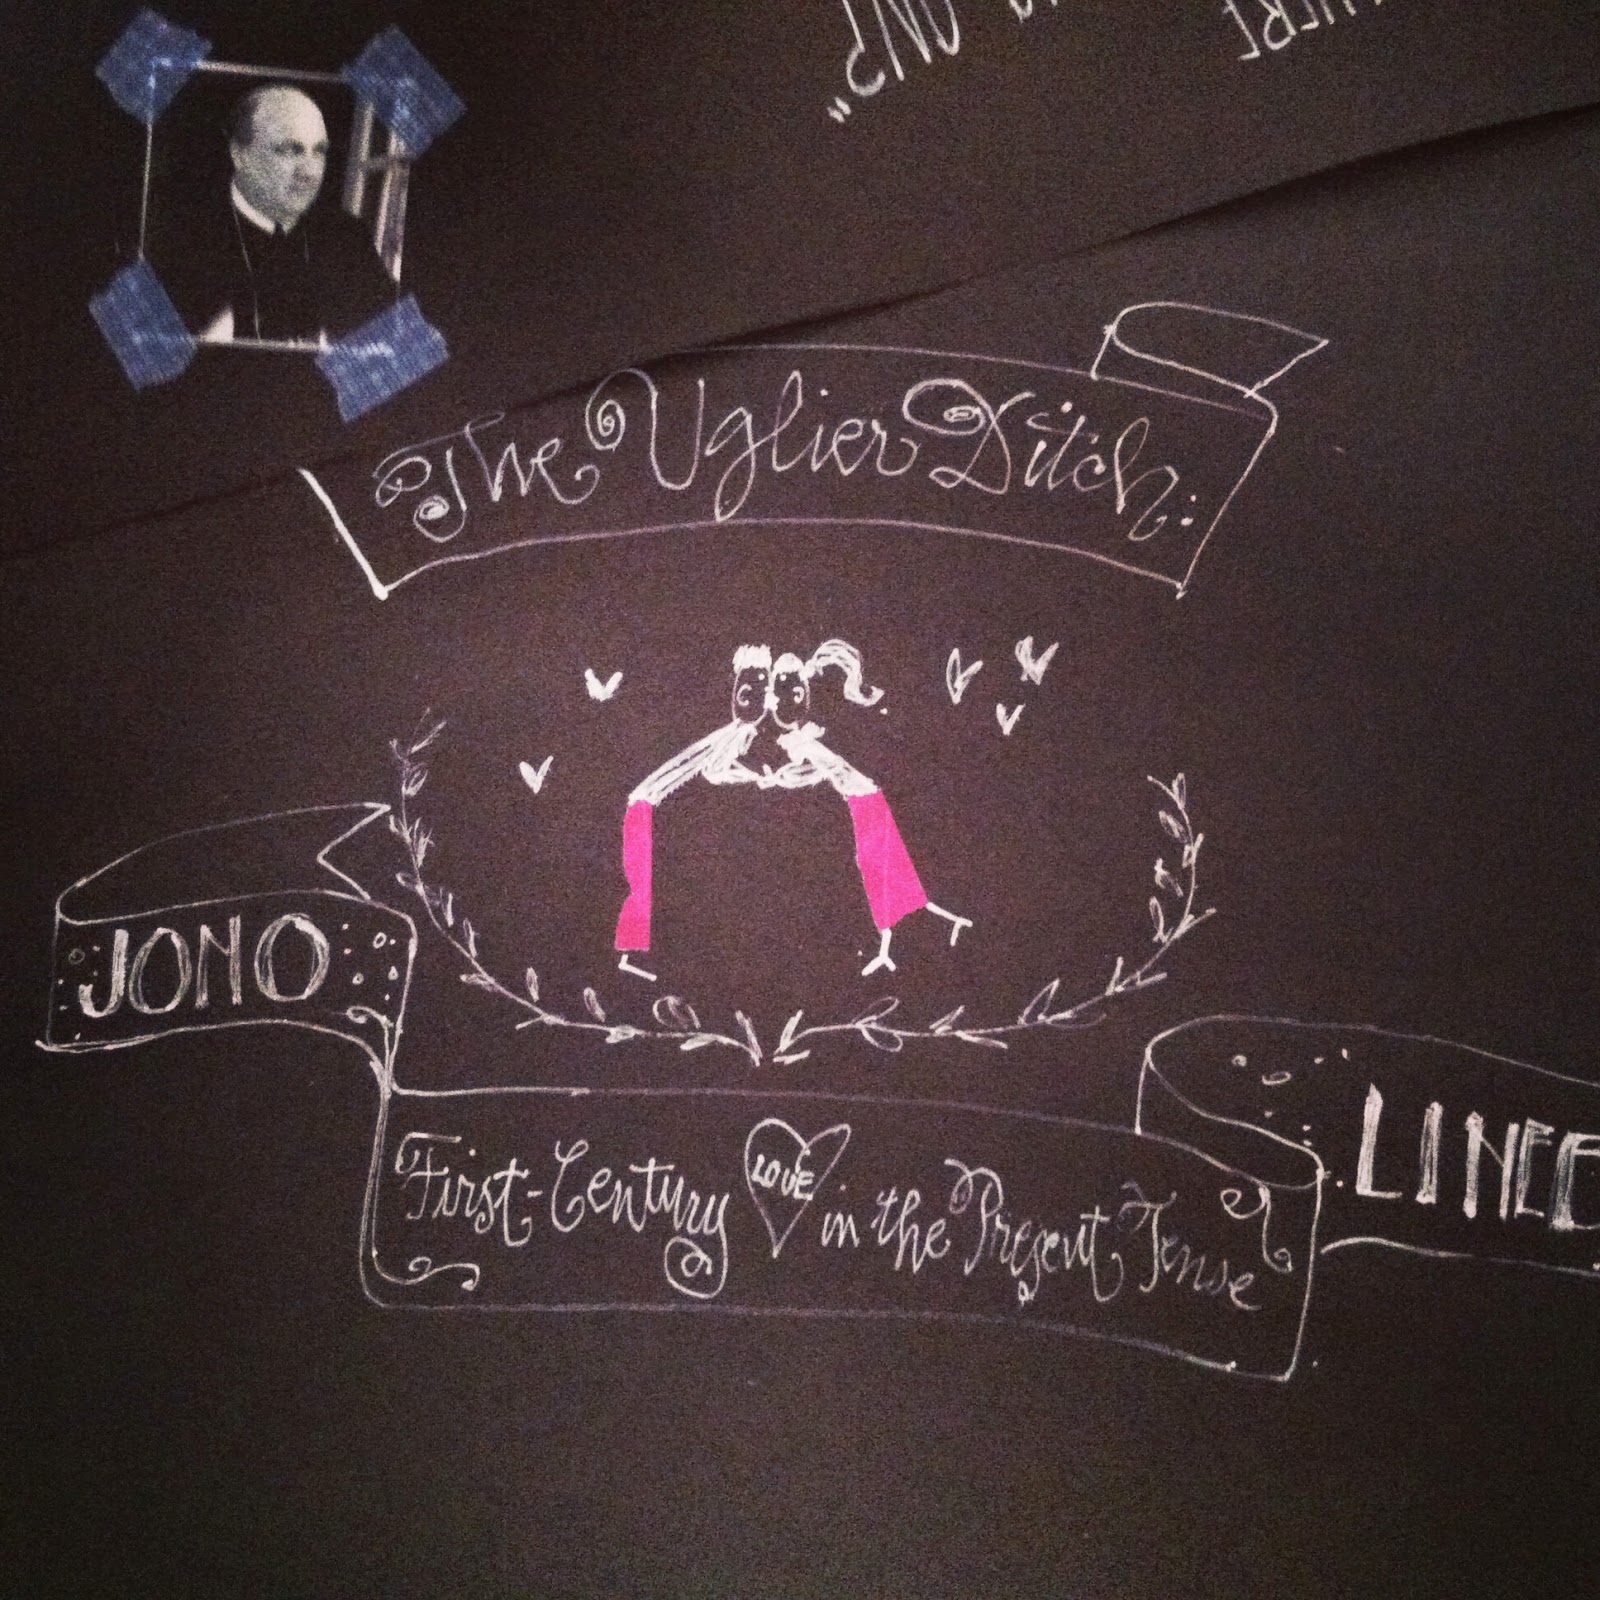 The Uglier Ditch:
JONO
LINEE
First-Century LOVE in the Present Tense